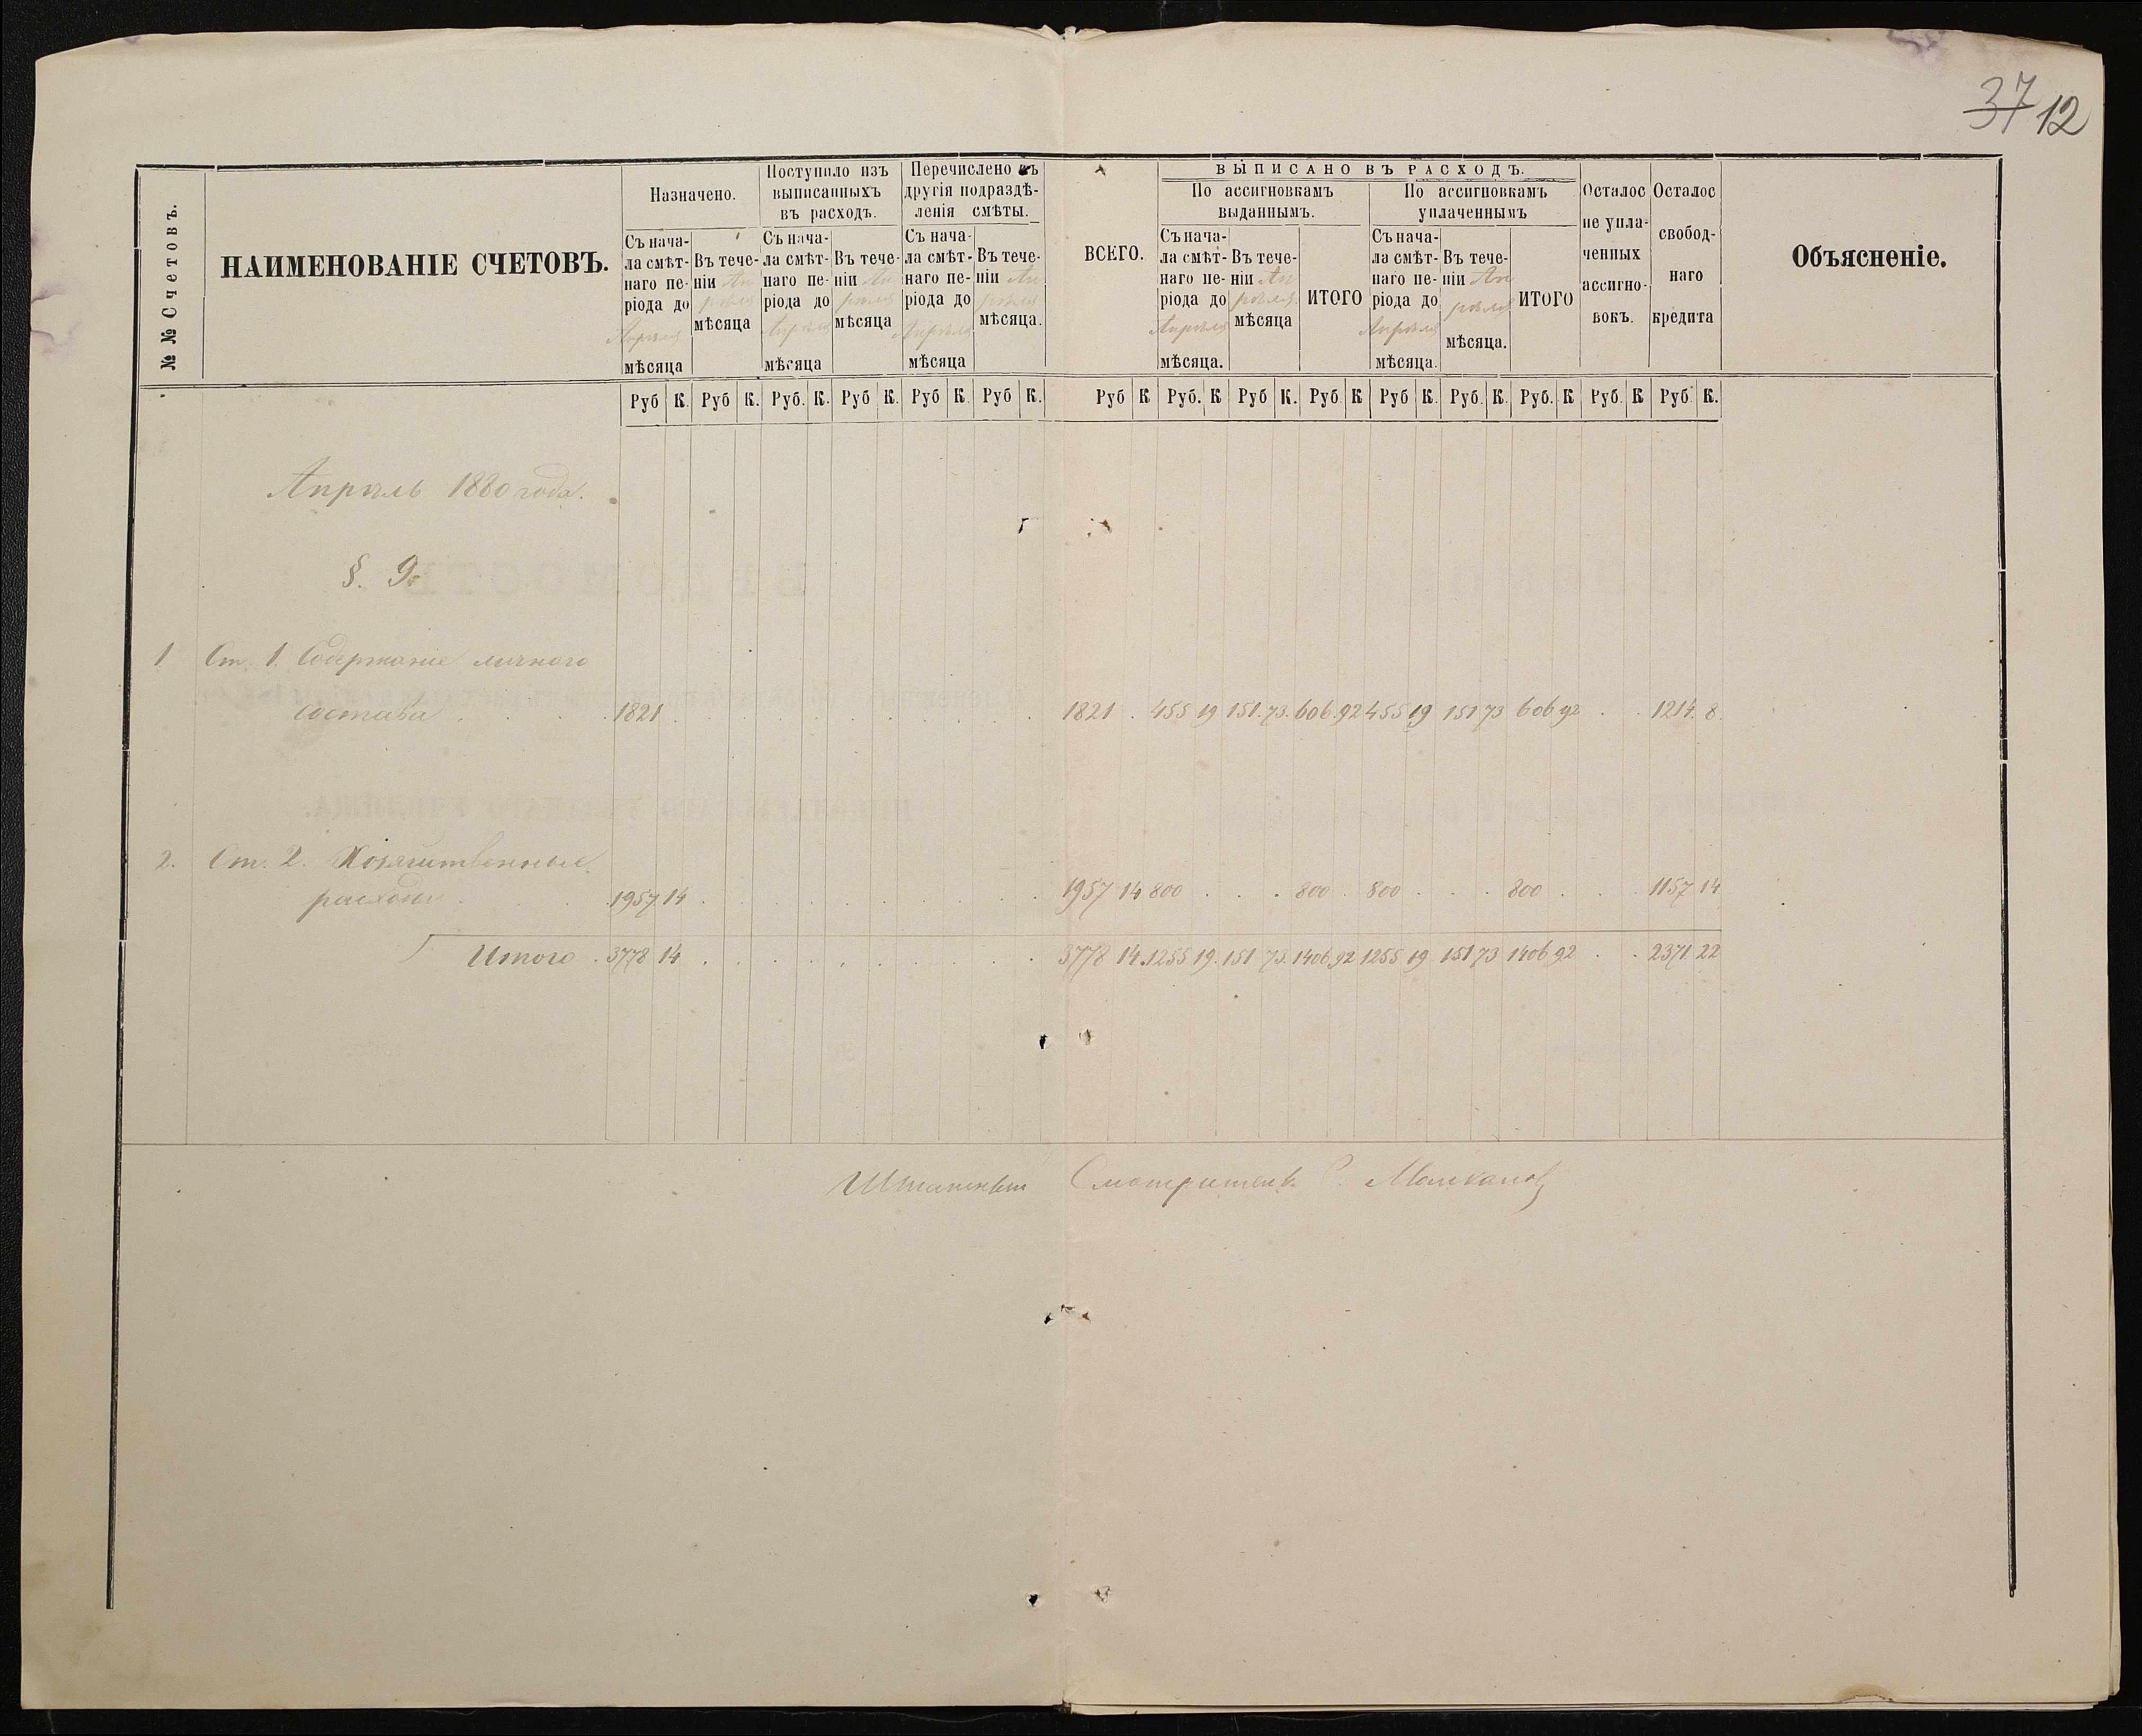 37 12
№ № Счетовъ.
НАИМЕНОВАНІЕ СЧЕТОВЪ.
Назначено.
Съ нача-
ла смѣт-
наго пе-
ріода до
Апрѣля
мѣсяца
Въ тече-
ніи Ап
рѣля
мѣсяца
Поступило изъ
выписанныхъ
въ расходъ.
Съ нача-
ла смѣт-
наго пе-
ріода до
Апрѣля
мѣсяца
Въ тече-
ніи Ап
рѣля
мѣсяца
Перечислено въ
другія подраздѣ-
ленія смѣты.
Съ нача-
ла смѣт-
наго пе-
ріода до
Апрѣля
мѣсяца
Въ тече-
ніи Ап
рѣля
мѣсяца.
ВСЕГО.
ВЫПИСАНО ВЪ РАСХОДЪ.
По ассигновкамъ
выданнымъ.
Съ нача-
ла смѣт-
наго пе-
ріода до
Апрѣля
мѣсяца.
Въ тече-
ніи Ап
рѣля
мѣсяца
ИТОГО
По ассигновкамъ
уплаченнымъ
Съ нача-
ла смѣт-
наго пе-
ріода до
Апрѣля
мѣсяца.
Въ тече-
ніи Ап
рѣля
мѣсяца.
ИТОГО
Осталос
не упла-
ченных
ассигно-
вокъ.
Осталос
свобод-
наго
кредита
Объясненіе.
Руб К. Руб К. Руб. К. Руб К. Руб К. Руб К. Руб К Руб. К Руб К. Руб К Руб К. Руб. К. Руб. К Руб. К Руб. К.
Апрѣль 1880 года.
§. 9.
1 Ст. 1. Содержаніе личнаго
состава . 1821 . 1821 . 455 19 151. 73. 606. 92 455 19 151 73 606 92 . . 1214. 8.
2. Ст. 2. Хозяйственные
расходы . 1957. 14 . 1957 14 800 . . . 800 . 800 . . . 800 . . . 1157 14
Итого . 3778 14 . 3778 14. 1255 19. 151 73. 1406 92 1255 19 151 73 1406 92 . . 2371 22
Штатный Смотритель